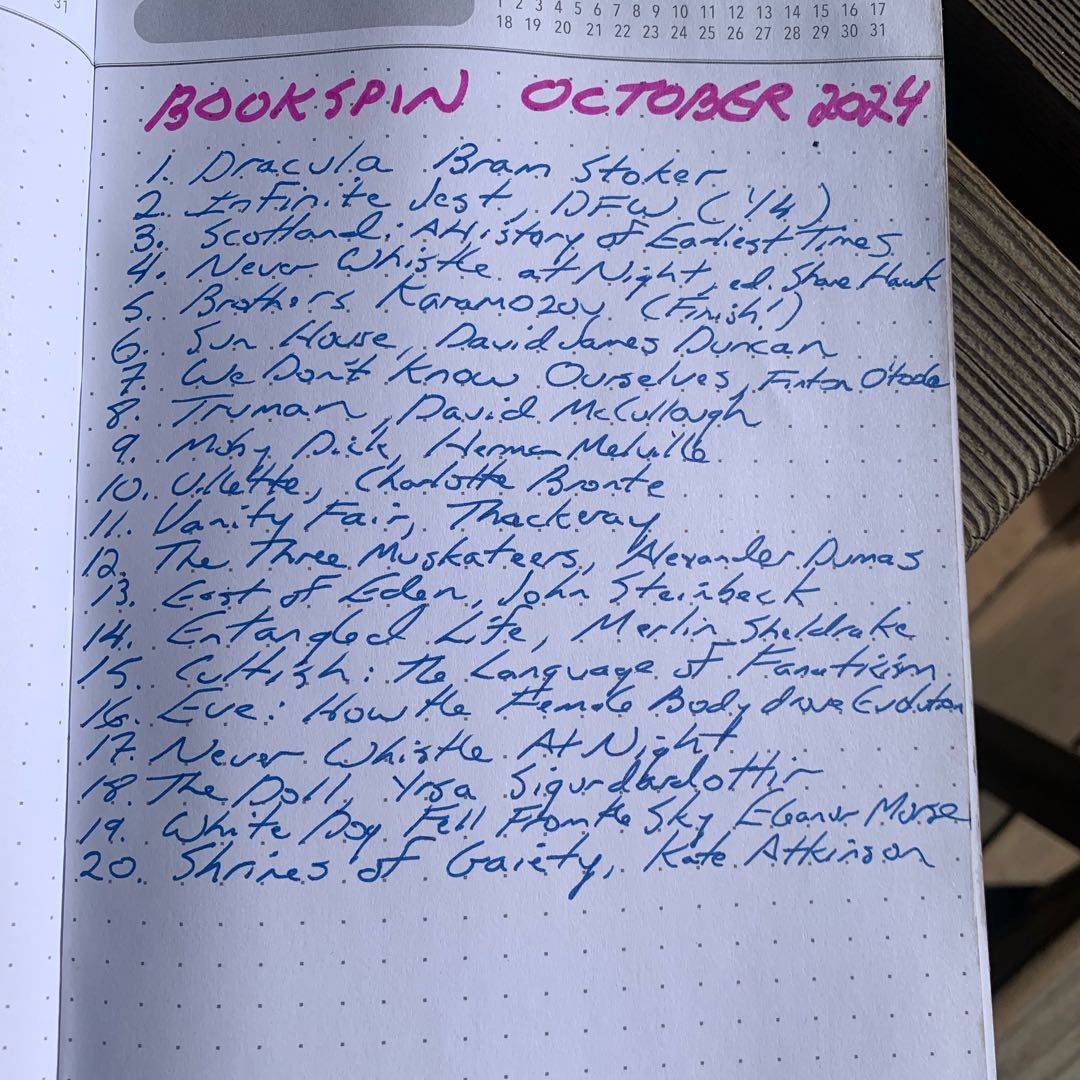 31
1 2 3 4 5 6 7 8 9 10 11 12 13 14 15 16 17
18 19 20 21 22 23 24 25 26 27 28 29 30 31
BOOKSPIN OCTOBER 2024
1. Dracula Bram Stoker
2. Infinite Jest, DFW (1/4)
3. Scotland: A History of Earliest Times
4. Never Whistle at Night, ed. Shane Hawk
5. Brothers Karamozov (Finish!)
6. Sun House, David James Duncan
7. We Don't Know Ourselves, Finton O'toole
8. Truman, David McCullough
9. Moby Dick, Herman Melville
10. Villette, Charlotte Bronte
11. Vanity Fair, Thackeray
12. The Three Muskateers, Alexander Dumas
13. East of Eden, John Steinbeck
14. Entangled Life, Merlin Sheldrake
15. Cultish: The Language of Fanaticism
16. Eve: How the Female Body drove Evolution
17. Never Whistle At Night
18. The Doll, Yrsa Sigurdardottir
19. White Dog Fell From the Sky Eleanor Morse
20. Shrines of Gaiety, Kate Atkinson